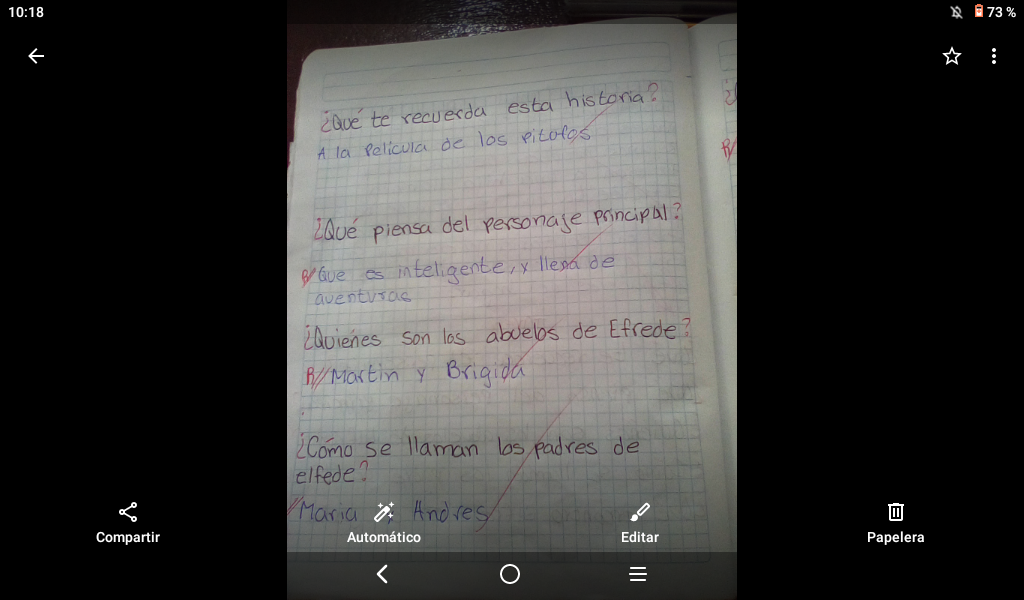 10:18
73 %
¿Qué te recuerda esta historia?
A la Pelicula de los pitofos
¿Qué piensa del personaje principal?
R/ Que es inteligente, y llena de
aventuras
¿Quiénes son los abuelos de Efrede?
R// Martin y Brigida
¿Cómo se llaman los padres de
elfede?
// Maria Andres
R/
Compartir
Automático
Editar
Papelera